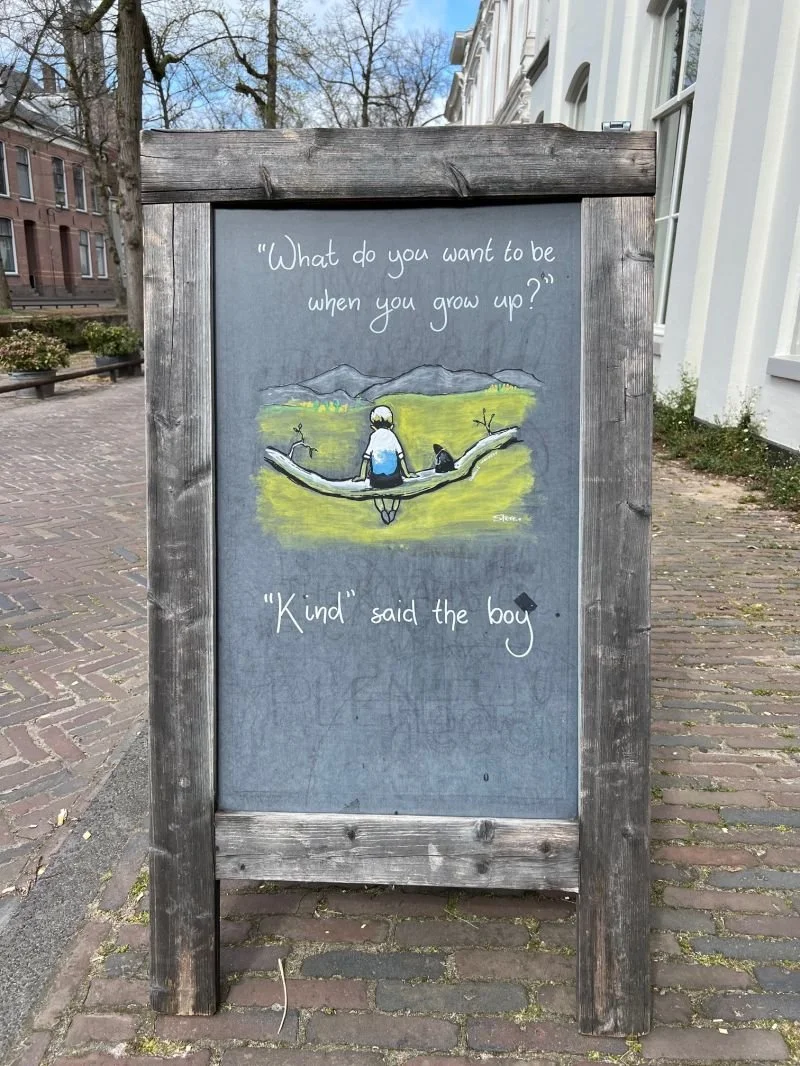 "What do you want to be
when you grow up?"
Steve.
"Kind" said the boy
PLENTY